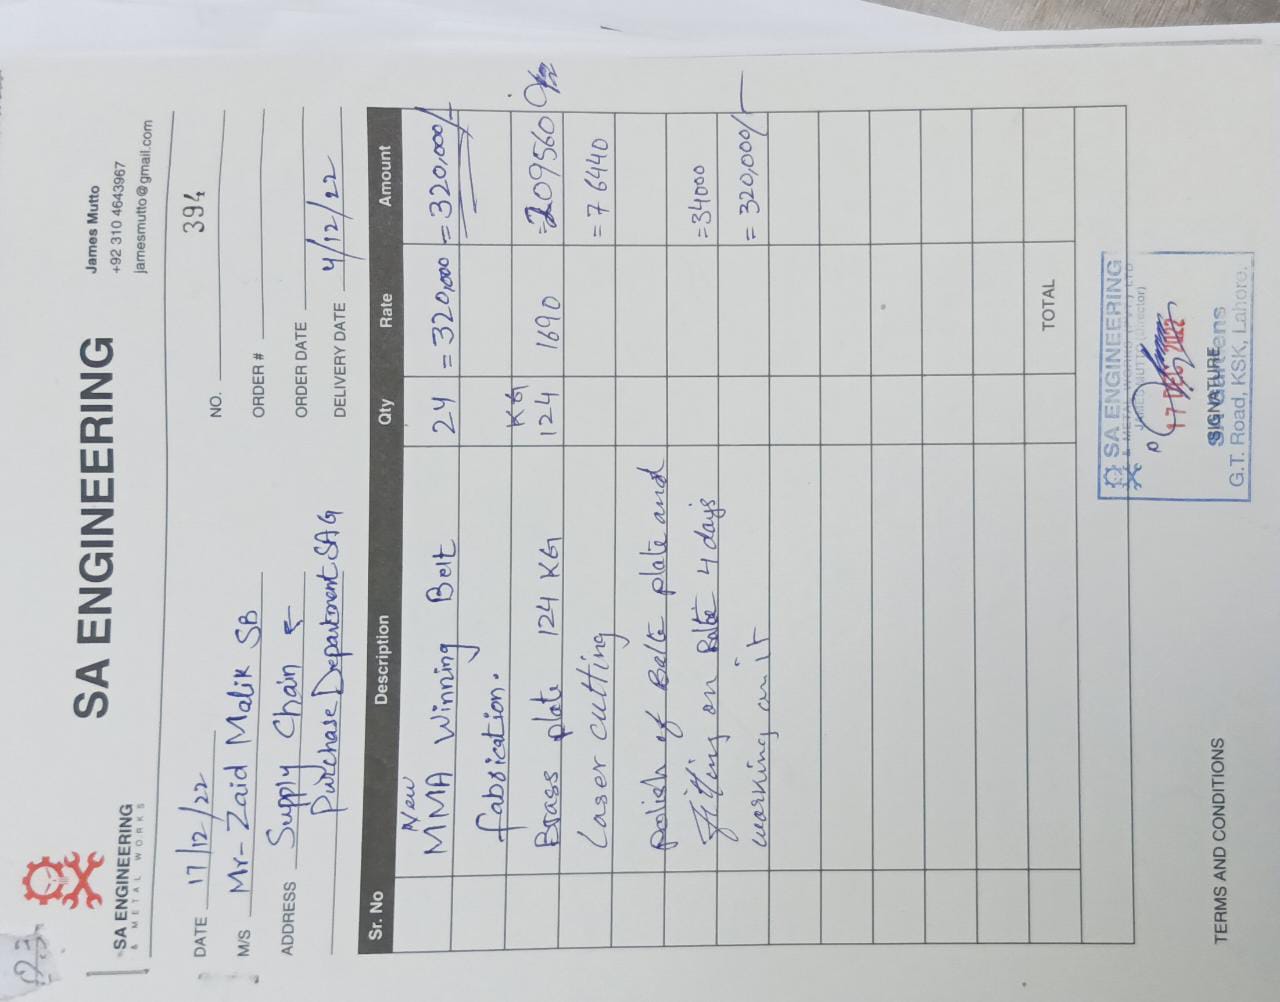 SA ENGINEERING
& METAL WORKS
SA ENGINEERING
James Mutto
+92 310 4643967
jamesmutto@gmail.com
DATE 17/12/22
NO. 394
M/S Mr- Zaid Malik SB
ORDER #
ADDRESS Supply Chain &
ORDER DATE
Purchase Department SAG
DELIVERY DATE 4/12/22
Sr. No Description Qty Rate Amount
New
MMA Winning Belt 24 = 320,000 = 320,000/-
fabrication.
KG
Brass plate 124 KG 124 1690 =209560
Laser cutting = 76440
polish of Belte plate and
fitting on Belte 4 days =34000
working on it = 320,000/-
TOTAL
SA ENGINEERING
& METAL WORKS (PVT) LTD
JAMES MUTTO (Director)
17 DEC 2022
SIGNATURE
SA Gardens
G.T. Road, KSK, Lahore.
TERMS AND CONDITIONS